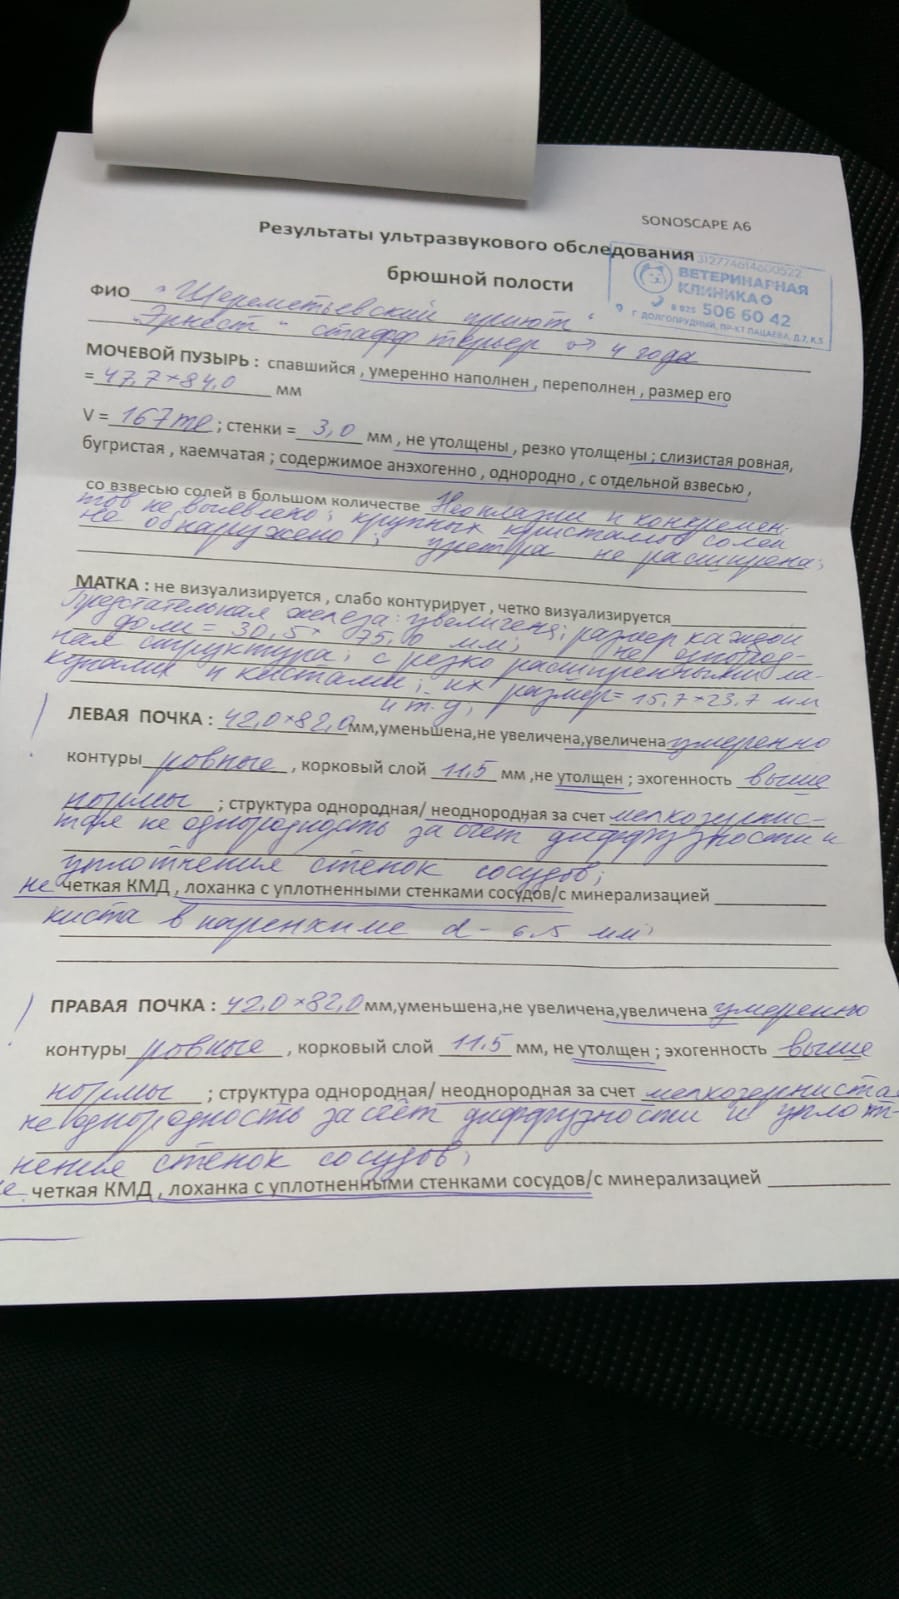 SONOSCAPE A6
Результаты ультразвукового обследования
брюшной полости
312774614600522
ВЕТЕРИНАРНАЯ
КЛИНИКА
8 925 506 60 42
Г. ДОЛГОПРУДНЫЙ, ПР-КТ ПАЦАЕВА, Д.7, К.5
ФИО "Шереметьевский приют"
"Эрнест" стафф терьер ♂ 4 года
МОЧЕВОЙ ПУЗЫРЬ : спавшийся , умеренно наполнен , переполнен , размер его
= 47,7×84,0 мм
V = 167 ml ; стенки = 3,0 мм , не утолщены , резко утолщены ; слизистая ровная,
бугристая , каемчатая ; содержимое анэхогенно , однородно , с отдельной взвесью ,
со взвесью солей в большом количестве Неоплазии и конкремен-
тов не выявлено; крупных кристаллов солей
не обнаружено; уретра не расширена;
МАТКА : не визуализируется , слабо контурирует , четко визуализируется
Предстательная железа: увеличена; размер каждой
доли = 30,5× 75,0 мм; не однород-
ная структура; с резко расширенными ла-
кунами и кистами; их размер= 15,7×23,7 мм
и т.д,
ЛЕВАЯ ПОЧКА : 42,0×82,0 мм,уменьшена,не увеличена,увеличена умеренно
контуры ровные , корковый слой 11,5 мм ,не утолщен ; эхогенность выше
нормы ; структура однородная/ неоднородная за счет мелкозернис-
тая не однородность за счет диффузности и
уплотнения стенок сосудов;
не четкая КМД , лоханка с уплотненными стенками сосудов/с минерализацией
киста в паренхиме d - 6,5 мм;
ПРАВАЯ ПОЧКА : 42,0×82,0 мм,уменьшена,не увеличена,увеличена умеренно
контуры ровные , корковый слой 11,5 мм, не утолщен ; эхогенность выше
нормы ; структура однородная/ неоднородная за счет мелкозернистая
неоднородность за счёт диффузности и уплот-
нения стенок сосудов;
не четкая КМД , лоханка с уплотненными стенками сосудов/с минерализацией